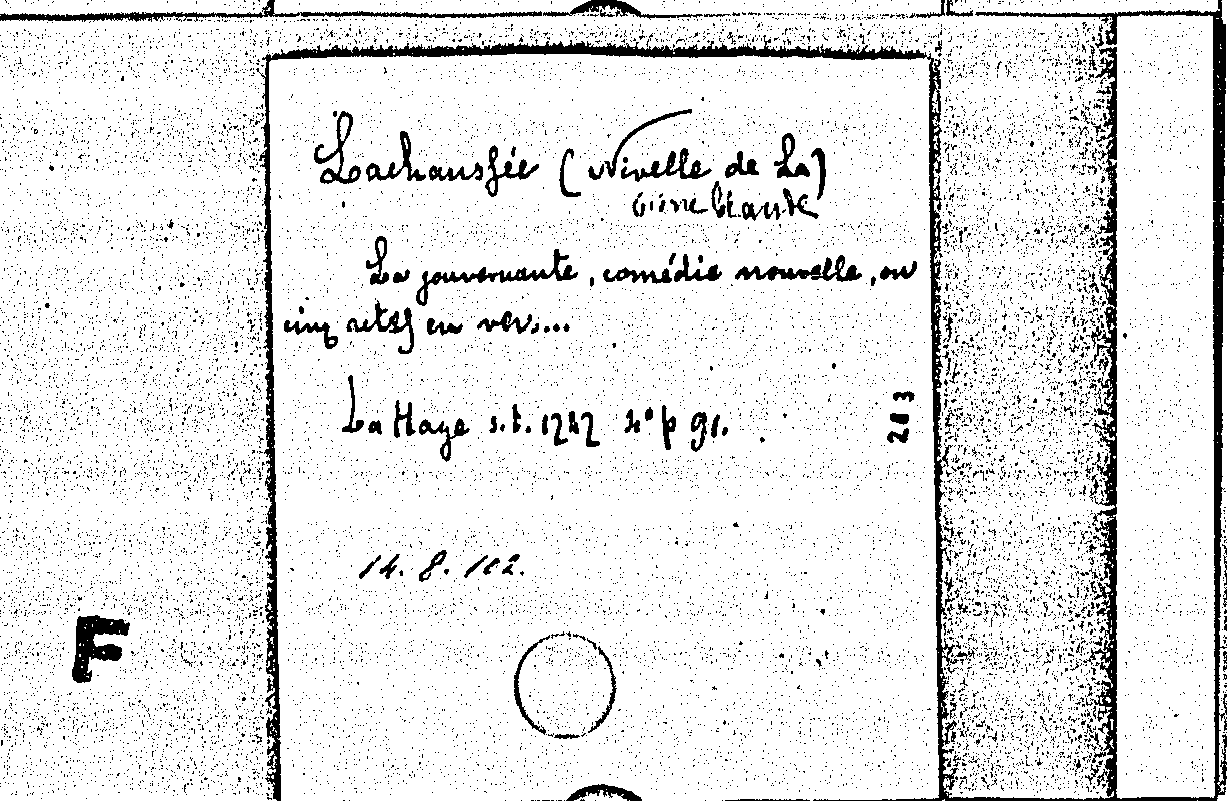 Lachaussée (Nivelle de La)
Pierre Claude
La gouvernante, comédie nouvelle, en
cinq actes en vers....
La Haye s.t. 1747 4° p 91.
283
14. 8. 102.
F